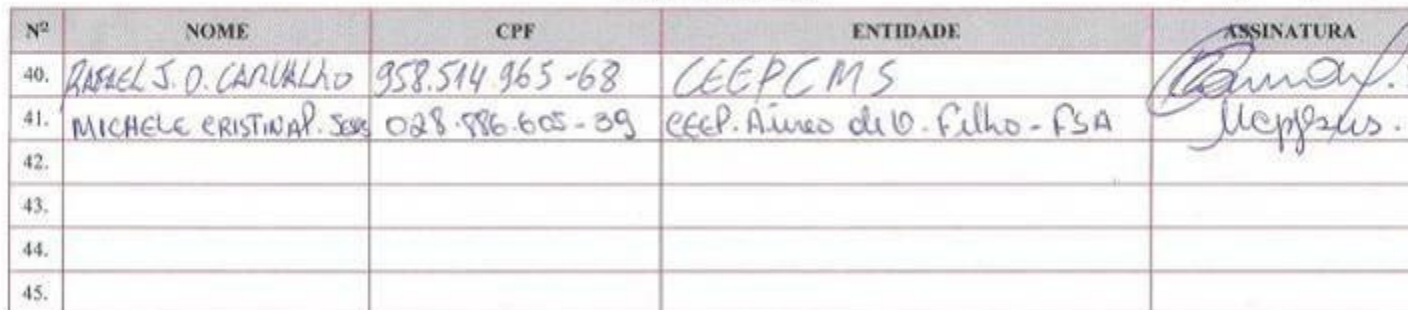 Nº NOME CPF ENTIDADE ASSINATURA
40. RAFAEL J. O. CARVALHO 958.514.965-68 CEEPCMS
41. MICHELE CRISTINA P. JESUS 028.886.605-39 CEEP. Áureo de O. Filho - FSA
42.
43.
44.
45.